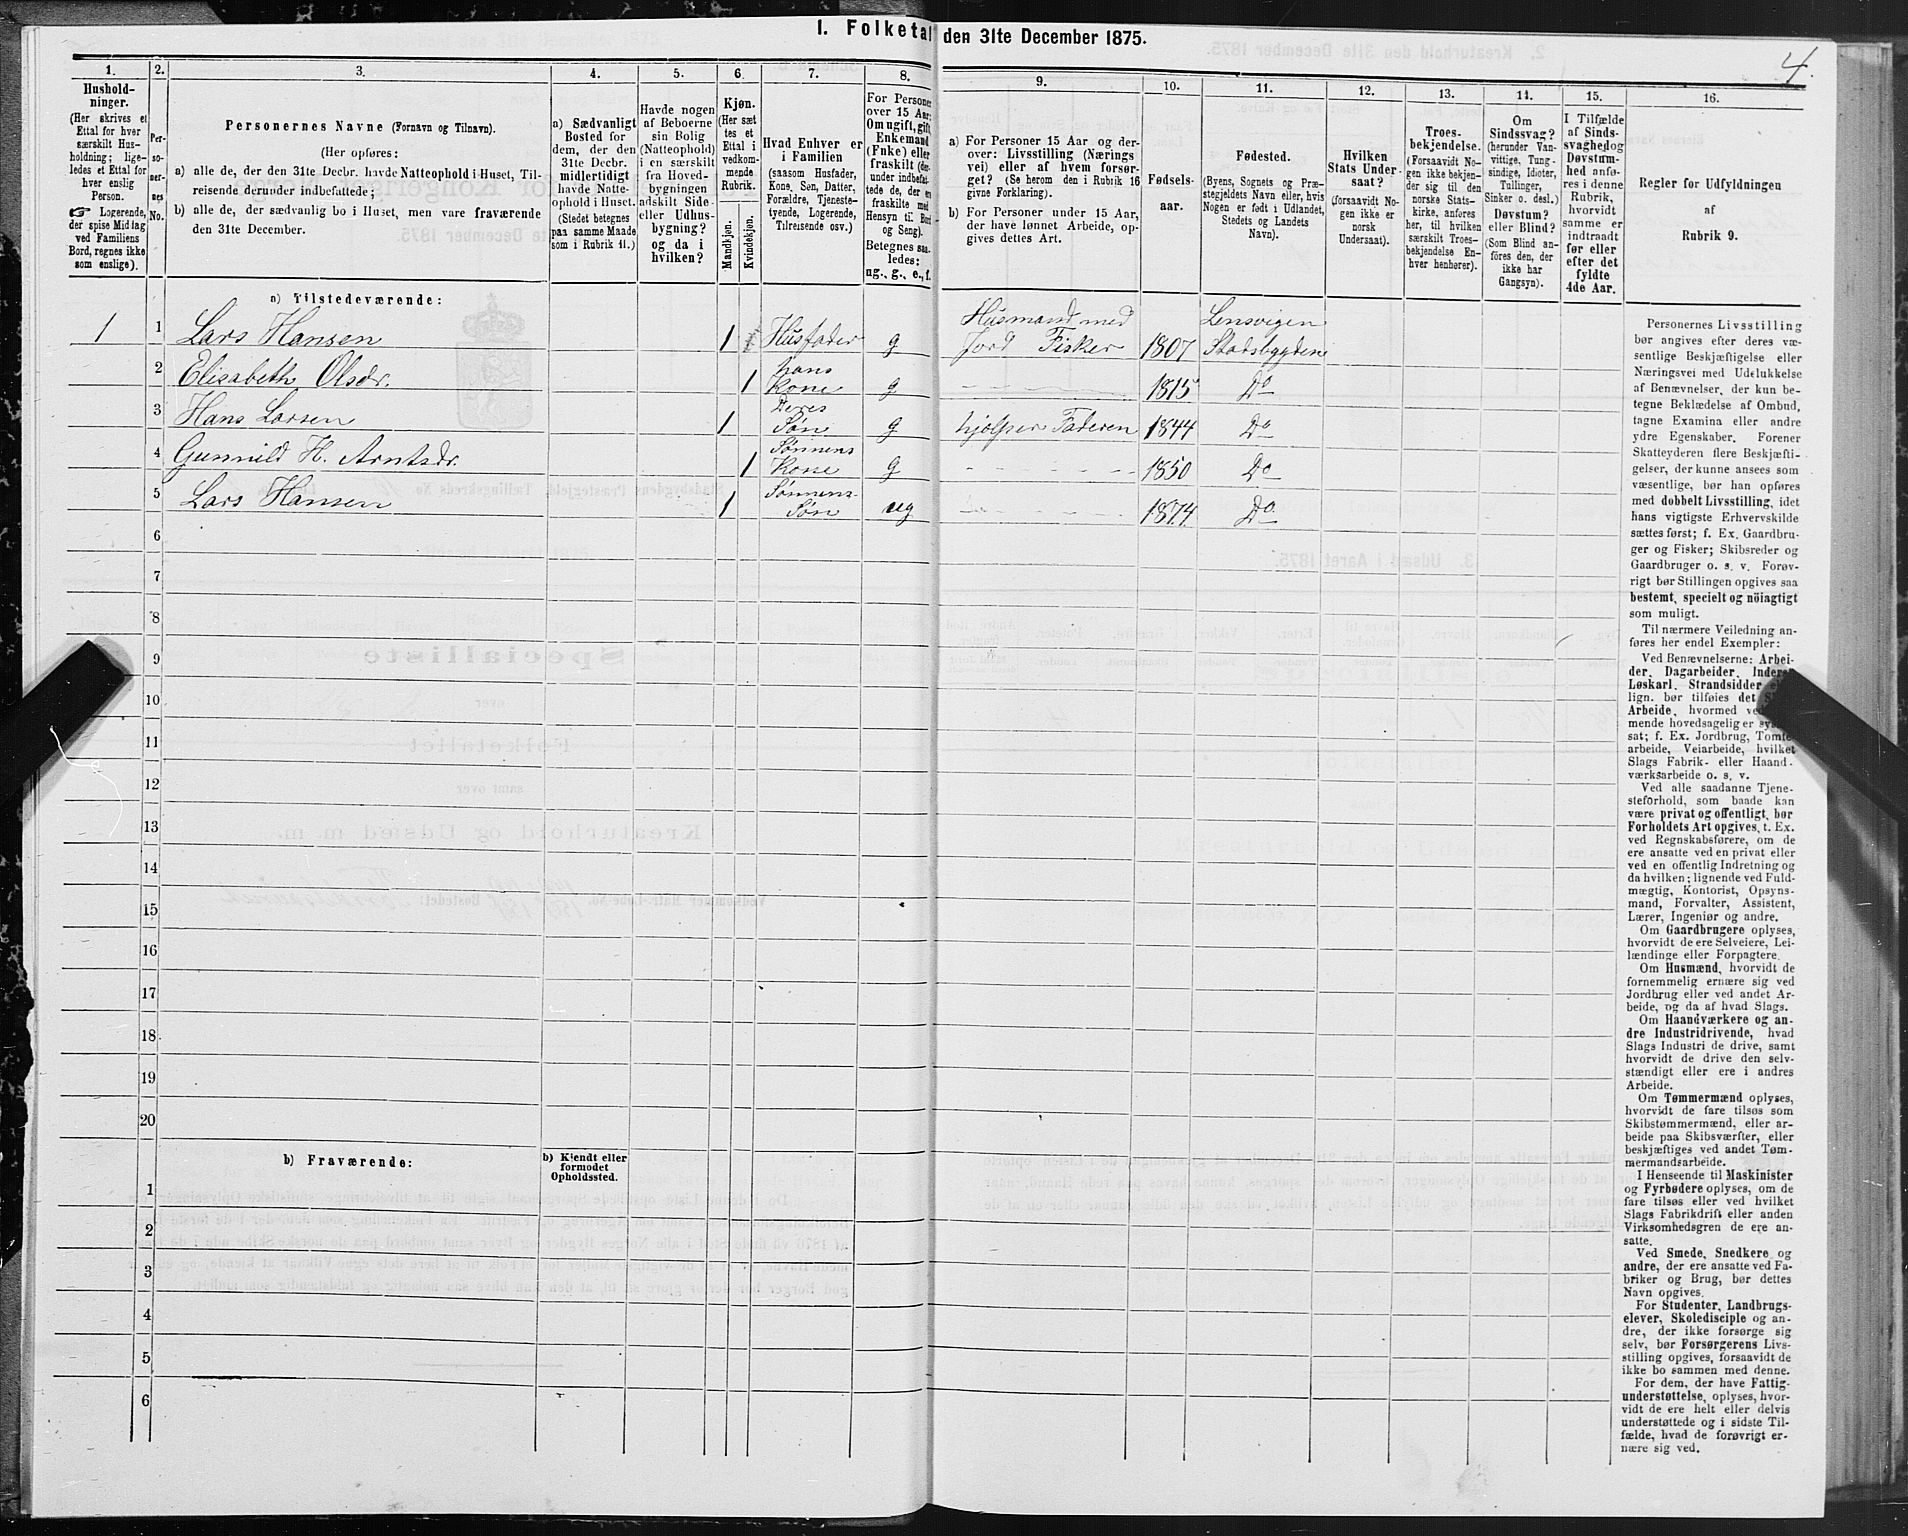 1. Folketal den 31te December 1875.
4.
1.
Hushold-
ninger.
(Her skrives et
Ettal for hver
særskilt Hus-
holdning; lige-
ledes et Ettal for
hver enslig
Person.
☞ Logerende,
der spise Middag
ved Familiens
Bord, regnes ikke
som enslige).
2.
Per-
so-
ner-
nes
No.
3.
Personernes Navne (Fornavn og Tilnavn).
(Her opføres:
a) alle de, der den 31te Decbr. havde Natteophold i Huset, Til-
reisende derunder indbefattede;
b) alle de, der sædvanlig bo i Huset, men vare fraværende
den 31te December.
4.
a) Sædvanligt
Bosted for
dem, der den
31te Decbr.
midlertidigt
havde Natte-
ophold i Huset.
(Stedet betegnes
paa samme Maade
som i Rubrik 11.)
5.
Havde nogen
af Beboerne
sin Bolig
(Natteophold)
i en særskilt
fra Hoved-
bygningen
adskilt Side-
eller Udhus-
bygning?
og da i
hvilken?
6.
Kjøn.
(Her sæt-
tes et
Ettal i
vedkom-
mende
Rubrik.
Mandkjøn.
Kvindekjøn.
7.
Hvad Enhver er
i Familien
(saasom Husfader,
Kone, Søn, Datter,
Forældre, Tjeneste-
tyende, Logerende,
Tilreisende osv.)
8.
For Personer
over 15 Aar:
Om ugift, gift,
Enkemand
(Enke) eller
fraskilt (der-
under indbefat-
tede de, der ere
fraskilte med
Hensyn til Bord
og Seng).
Betegnes saa-
ledes:
ug., g., e., f.
9.
a) For Personer 15 Aar og der-
over: Livsstilling (Nærings-
vei) eller af hvem forsør-
get? (Se herom den i Rubrik 16
givne Forklaring).
b) For Personer under 15 Aar,
der have lønnet Arbeide, op-
gives dettes Art.
10.
Fødsels-
aar.
11.
Fødested.
(Byens, Sognets og Præ-
stegjeldets Navn eller, hvis
Nogen er født i Udlandet,
Stedets og Landets
Navn).
12.
Hvilken
Stats Under-
saat?
(forsaavidt No-
gen ikke er
norsk
Undersaat).
13.
Troes-
bekjendelse.
(Forsaavidt No-
gen ikke bekjen-
der sig til den
norske Stats-
kirke, anføres
her, til hvilken
særskilt Troes-
bekjendelse En-
hver henhører).
14.
Om
Sindssvag?
(herunder Van-
vittige, Tung-
sindige, Idioter,
Tullinger,
Sinker o. desl.)
Døvstum?
eller Blind?
(Som Blind an-
føres den, der
ikke har
Gangsyn).
15.
I Tilfælde
af Sinds-
svaghed og
Døvstum-
hed anfø-
res i denne
Rubrik,
hvorvidt
samme er
indtraadt
før eller
efter det
fyldte
4de Aar.
16.
Regler for Udfyldningen
af
Rubrik 9.
a) Tilstedeværende:
1 1 Lars Hansen 1 Husfader g Husmand med Jord Fisker 1807 Lensvigen Stadsbygden
2 Elisabeth Olsdr. 1 hans Kone g - - - - - 1815 Do
3 Hans Larsen 1 Deres Søn g hjælper Faderen 1844 Do
4 Gunnild H. Arntsdr. 1 Sønnens Kone g - - - - - 1850 Do
5 Lars Hansen 1 Sønnens Søn ug - - - - - 1874 Do
6
7
8
9
10
11
12
13
14
15
16
17
18
19
20
b) Fraværende:
b) Kjendt eller
formodet
Opholdssted.
1
2
3
4
5
6
Personernes Livsstilling
bør angives efter deres væ-
sentlige Beskjæftigelse eller
Næringsvei med Udelukkelse
af Benævnelser, der kun be-
tegne Beklædelse af Ombud,
tagne Examina eller andre
ydre Egenskaber. Forener
Skatteyderen flere Beskjæfti-
gelser, der kunne ansees som
væsentlige, bør han opføres
med dobbelt Livsstilling, idet
hans vigtigste Erhvervskilde
sættes først; f. Ex. Gaardbru-
ger og Fisker; Skibsreder og
Gaardbruger o. s. v. Forøv-
rigt bør Stillingen opgives saa
bestemt, specielt og nöiagtigt
som muligt.
Til nærmere Veiledning an-
føres her endel Exempler:
Ved Benævnelserne: Arbei-
der, Dagarbeider, Inderst,
Løskarl, Strandsidder
lign. bør tilføies det
Arbeide, hvormed
mende hovedsagelig er
sat; f. Ex. Jordbrug, Tomte-
arbeide, Veiarbeide, hvilket
Slags Fabrik- eller Haand-
værksarbeide o. s. v.
Ved alle saadanne Tjene-
steforhold, som baade kan
være privat og offentligt, bør
Forholdets Art opgives, t. Ex.
ved Regnskabsførere, om de
ere ansatte ved en privat eller
ved en offentlig Indretning og
da hvilken; lignende ved Fuld-
mægtig, Kontorist, Opsyns-
mand, Forvalter, Assistent,
Lærer, Ingeniør og andre.
Om Gaardbrugere oplyses,
hvorvidt de ere Selveiere, Lei-
lændinge eller Forpagtere.
Om Husmænd, hvorvidt de
fornemmelig ernære sig ved
Jordbrug eller ved andet Ar-
beide, og da af hvad Slags.
Om Haandværkere og an-
dre Industridrivende, hvad
Slags Industri de drive, samt
hvorvidt de drive den selv-
stændigt eller ere i andres
Arbeide.
Om Tømmermænd oplyses,
hvorvidt de fare tilsøs som
Skibstømmermænd, eller ar-
beide paa Skibsværfter, eller
beskjæftiges ved andet Tøm-
mermandsarbeide.
I Henseende til Maskinister
og Fyrbødere oplyses, om de
fare tilsøs eller ved hvilket
Slags Fabrikdrift eller anden
Virksomhedsgren de ere an-
satte.
Ved Smede, Snedkere og
andre, der ere ansatte ved Fa-
briker og Brug, bør dettes
Navn opgives.
For Studenter, Landbrugs-
elever, Skoledisciple og an-
dre, der ikke forsørge sig
selv, bør Forsørgerens Livs-
stilling opgives, forsaavidt de
ikke bo sammen med denne.
For dem, der have Fattig-
understøttelse, oplyses, hvor-
vidt de ere helt eller delvis
understøttede og i sidste Til-
fælde, hvad de forøvrigt er-
nære sig ved.